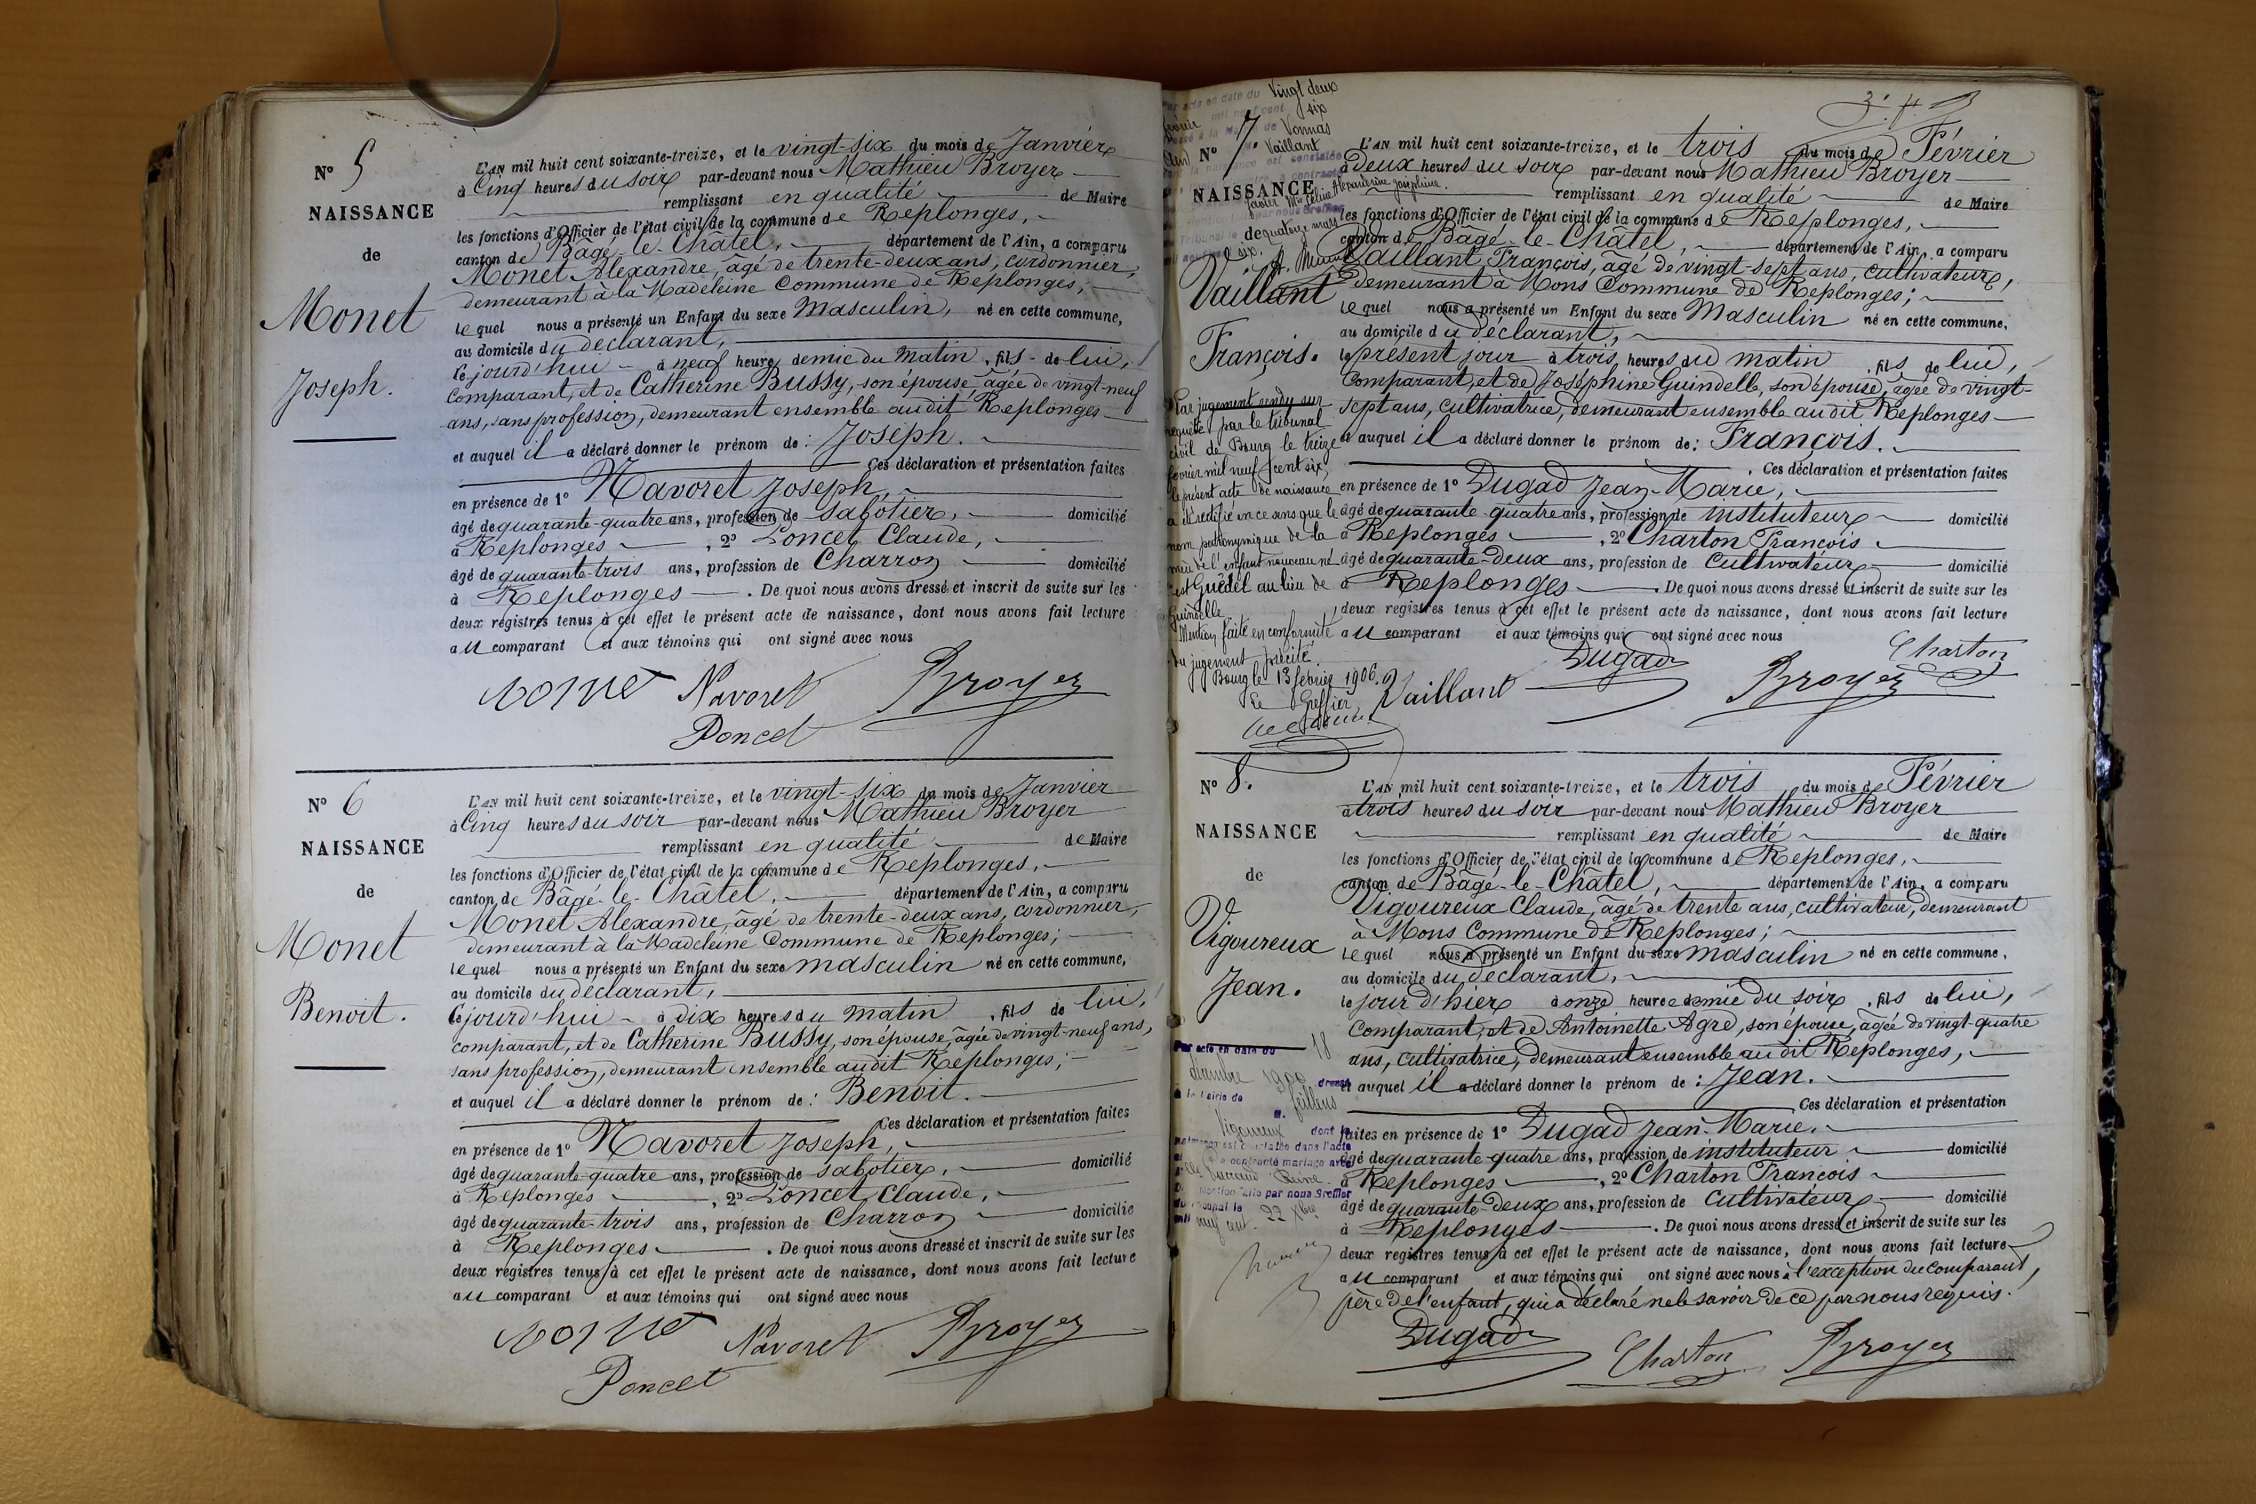 N° 5
NAISSANCE
de
Monet
Joseph.
L'AN mil huit cent soixante-treize, et le vingt-six du mois de Janvier
à Cinq heures du soir par-devant nous Mathieu Broyer
remplissant en qualité de Maire
les fonctions d'Officier de l'état civil de la commune de Replonges,
canton de Bâgé-le-Châtel, département de l'Ain, a comparu
Monet Alexandre, âgé de trente-deux ans, cordonnier,
demeurant à la Madeleine Commune de Replonges,
lequel nous a présenté un Enfant du sexe Masculin, né en cette commune,
au domicile du déclarant,
le jourd'hui à neuf heures demie du Matin, fils de lui,
comparant, et de Catherine Bussy, son épouse, âgée de vingt-neuf
ans, sans profession, demeurant ensemble audit Replonges
et auquel il a déclaré donner le prénom de : Joseph.
Ces déclaration et présentation faites
en présence de 1° Navoret Joseph,
âgé de quarante-quatre ans, profession de sabotier, domicilié
à Replonges, 2° Poncet Claude,
âgé de quarante-trois ans, profession de Charron domicilié
à Replonges. De quoi nous avons dressé et inscrit de suite sur les
deux registres tenus à cet effet le présent acte de naissance, dont nous avons fait lecture
au comparant et aux témoins qui ont signé avec nous
Monet Navoret Broyer
Poncet
N° 6
NAISSANCE
de
Monet
Benoit.
L'AN mil huit cent soixante-treize, et le vingt-six du mois de Janvier
à Cinq heures du soir par-devant nous Mathieu Broyer
remplissant en qualité de Maire
les fonctions d'Officier de l'état civil de la commune de Replonges,
canton de Bâgé-le-Châtel, département de l'Ain, a comparu
Monet Alexandre, âgé de trente-deux ans, cordonnier,
demeurant à la Madeleine Commune de Replonges;
lequel nous a présenté un Enfant du sexe masculin né en cette commune,
au domicile du déclarant,
le jourd'hui à dix heures du matin, fils de lui,
comparant, et de Catherine Bussy, son épouse, âgée de vingt-neuf ans,
sans profession, demeurant ensemble audit Replonges;
et auquel il a déclaré donner le prénom de : Benoit.
Ces déclaration et présentation faites
en présence de 1° Navoret Joseph,
âgé de quarante-quatre ans, profession de sabotier, domicilié
à Replonges, 2° Poncet Claude,
âgé de quarante-trois ans, profession de Charron domicilié
à Replonges. De quoi nous avons dressé et inscrit de suite sur les
deux registres tenus à cet effet le présent acte de naissance, dont nous avons fait lecture
au comparant et aux témoins qui ont signé avec nous
Monet Navoret Broyer
Poncet
acte en date du Vingt deux
mil neuf cent six
de Vonnas
Vaillant
N° 7.
NAISSANCE
Alexandrine Joséphine.
de quatorze mars
six.
Vaillant
François.
Par jugement rendu sur
requête par le tribunal
civil de Bourg le treize
février mil neuf cent six,
le présent acte de naissance
a été rectifié en ce sens que le
nom pathonymique de la
mère de l'enfant nouveau né
est Guédel au lieu de
Guindelle
Mention faite en conformité
du jugement précité.
Bourg le 13 février 1906.
Le Greffier
L'AN mil huit cent soixante-treize, et le trois du mois de Février
à Deux heures du soir par-devant nous Mathieu Broyer
remplissant en qualité de Maire
les fonctions d'Officier de l'état civil de la commune de Replonges,
canton de Bâgé-le-Châtel, département de l'Ain, a comparu
Vaillant François, âgé de vingt-sept ans, cultivateur,
demeurant à Mons Commune de Replonges;
lequel nous a présenté un Enfant du sexe Masculin né en cette commune,
au domicile du déclarant,
le présent jour à trois heures du matin, fils de lui,
Comparant, et de Joséphine Guindelle, son épouse, âgée de vingt-
sept ans, cultivatrice, demeurant ensemble audit Replonges
et auquel il a déclaré donner le prénom de : François.
Ces déclaration et présentation faites
en présence de 1° Dugad Jean-Marie,
âgé de quarante-quatre ans, profession de instituteur domicilié
à Replonges, 2° Charton François
âgé de quarante-Deux ans, profession de Cultivateur domicilié
à Replonges. De quoi nous avons dressé et inscrit de suite sur les
deux registres tenus à cet effet le présent acte de naissance, dont nous avons fait lecture
au comparant et aux témoins qui ont signé avec nous
Vaillant Dugad Broyer Charton
N° 8.
NAISSANCE
de
Vigoureux
Jean.
Par acte en date du 18
décembre 1900 dressé
à la Mairie de Feillens
Vigoureux dont la
naissance est constatée dans l'acte
a contracté mariage avec
Mention faite par nous Greffier
22 Xbre
L'AN mil huit cent soixante-treize, et le trois du mois de Février
à trois heures du soir par-devant nous Mathieu Broyer
remplissant en qualité de Maire
les fonctions d'Officier de l'état civil de la commune de Replonges,
canton de Bâgé-le-Châtel, département de l'Ain, a comparu
Vigoureux Claude, âgé de trente ans, cultivateur, demeurant
à Mons Commune de Replonges;
lequel nous a présenté un Enfant du sexe masculin né en cette commune,
au domicile du déclarant,
le jour d'hier à onze heures demie du soir, fils de lui,
Comparant, et de Antoinette Agre, son épouse, âgée de vingt-quatre
ans, cultivatrice, demeurant ensemble audit Replonges,
et auquel il a déclaré donner le prénom de : Jean.
Ces déclaration et présentation
faites en présence de 1° Dugad Jean-Marie,
âgé de quarante-quatre ans, profession de instituteur domicilié
à Replonges, 2° Charton François
âgé de quarante-Deux ans, profession de Cultivateur domicilié
à Replonges. De quoi nous avons dressé et inscrit de suite sur les
deux registres tenus à cet effet le présent acte de naissance, dont nous avons fait lecture
au comparant et aux témoins qui ont signé avec nous à l'exception du comparant,
père de l'enfant, qui a déclaré ne le savoir de ce par nous requis.
Dugad Charton Broyer